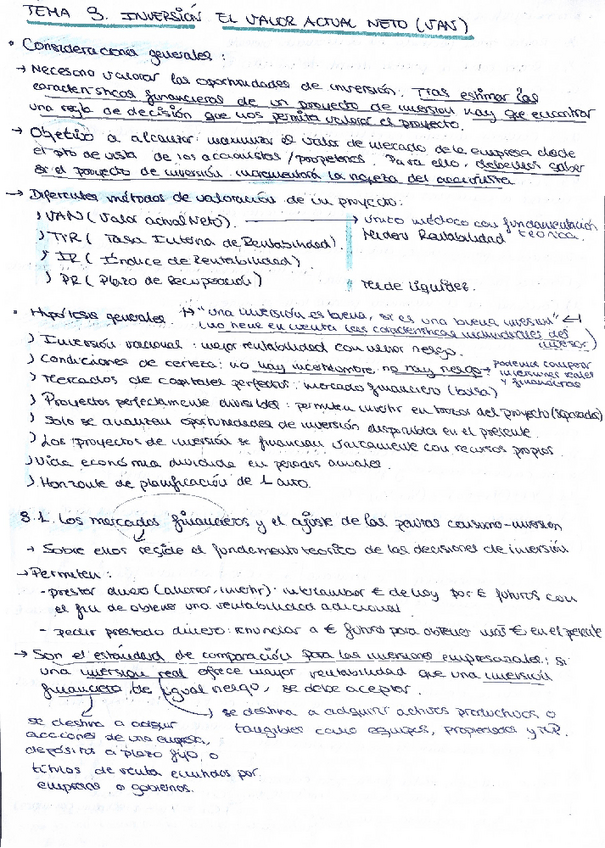 TEMA 3. INVERSIÓN EL VALOR ACTUAL NETO (VAN)
• Consideraciones generales:
→ Necesario valorar las oportunidades de inversión. Tras estimar las
características financieras de un proyecto de inversión hay que encontrar
una regla de decisión que nos permita valorar el proyecto.
→ Objetivo a alcanzar: maximizar el valor de mercado de la empresa desde
el pto de vista de los accionistas/propietarios. Para ello, debemos saber
si el proyecto de inversión incrementará la riqueza del accionista
→ Diferentes métodos de valoración de un proyecto:
) VAN (Valor actual Neto). → único método con fundamentación teórica.
) TIR (Tasa Interna de Rentabilidad). Miden Rentabilidad
) IR (Índice de Rentabilidad)
) PR (Plazo de Recuperación) Mide liquidez.
• Hipótesis generales. "una inversión es buena, si es una buena inversión"
(no tiene en cuenta las características individuales del inversor)
) Inversión racional: mejor rentabilidad con menor riesgo.
) Condiciones de certeza: no hay incertidumbre, no hay riesgo → podemos comparar inversiones reales y financieras
) Mercados de capitales perfectos: mercado financiero (bolsa)
) Proyectos perfectamente divisibles: permiten invertir en trozos del proyecto (separados)
) Solo se analizan oportunidades de inversión disponibles en el presente.
) Los proyectos de inversión se financian únicamente con recursos propios.
) Vida económica dividida en periodos anuales.
) Horizonte de planificación de 1 año.
3.1. Los mercados financieros y el ajuste de las pautas consumo-inversión
→ Sobre ellos reside el fundamento teórico de las decisiones de inversión
→ Permiten:
- prestar dinero (ahorrar, invertir): intercambiar € de hoy por € futuros con
el fin de obtener una rentabilidad adicional
- pedir prestado dinero: renunciar a € futuro para obtener más € en el presente
→ Son el estándard de comparación para las inversiones empresariales: si
una inversión real ofrece mayor rentabilidad que una inversión
financiera de igual riesgo, se debe aceptar.
se destina a adquirir activos productivos o
tangibles como equipos, propiedades y
se destina a adquirir
acciones de una empresa,
depósitos a plazo fijo, o
títulos de renta emitidos por
empresas o gobiernos.